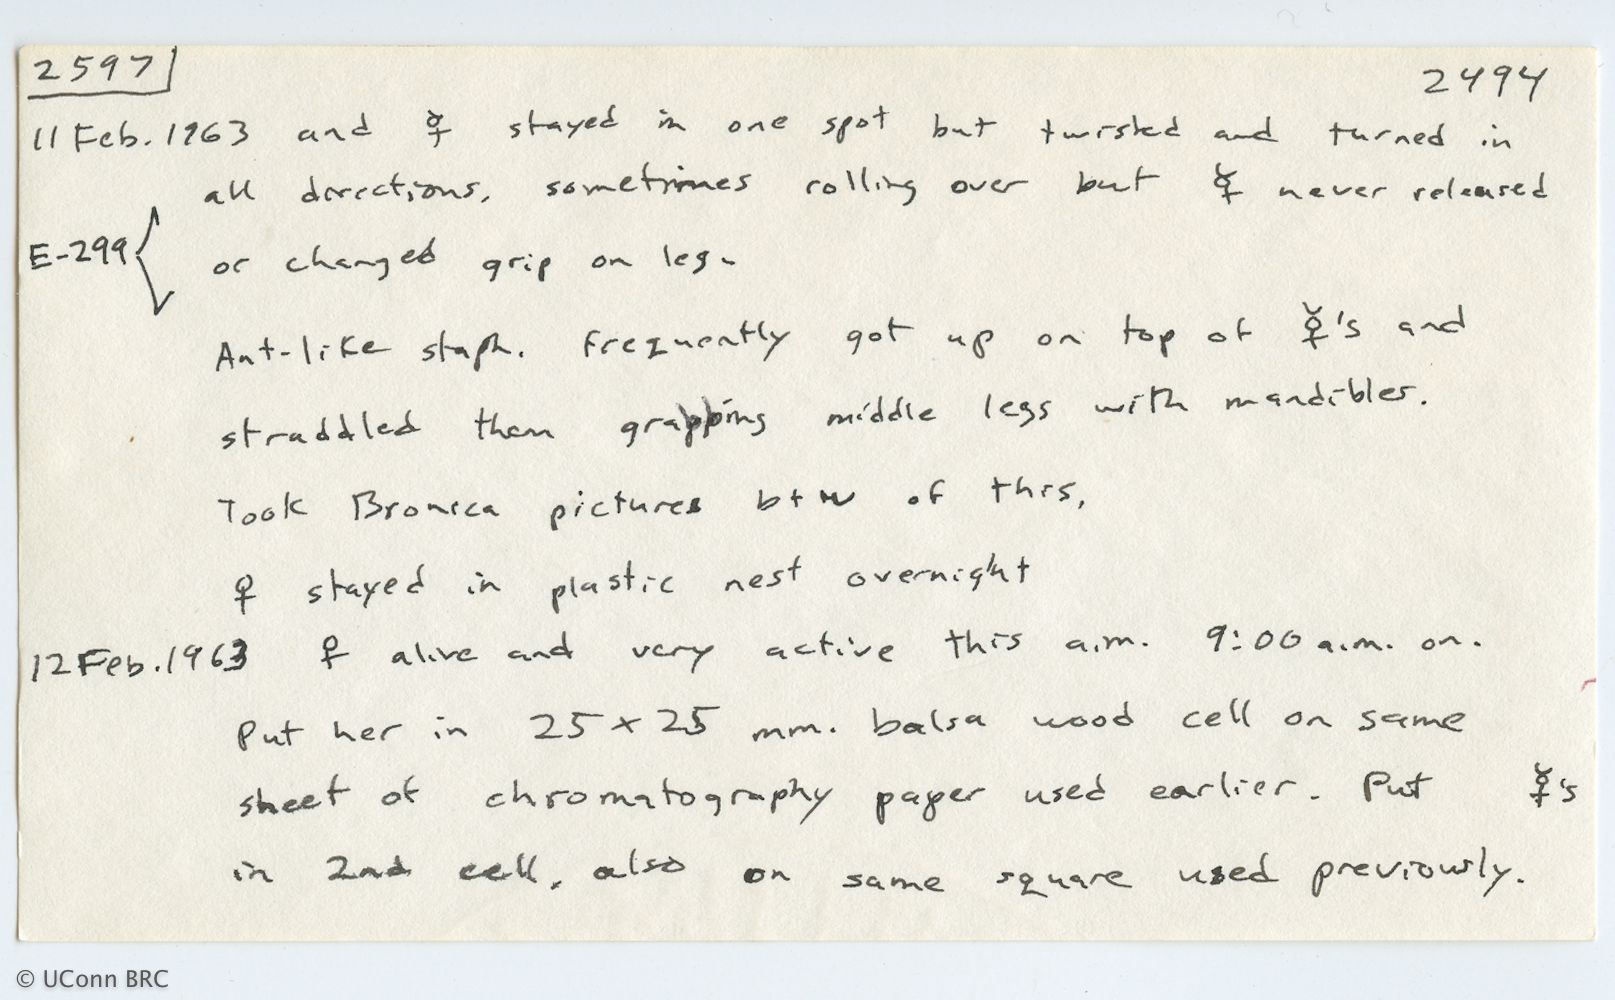 2597
2494
11 Feb. 1963 and ☿ stayed in one spot but twisted and turned in
all directions, sometimes rolling over but ☿ never released
E-299
or changed grip on leg.
Ant-like staph. frequently got up on top of ☿'s and
straddled them grapping middle legs with mandibles.
Took Bronica pictures b+w of this,
♀ stayed in plastic nest overnight
12 Feb. 1963 ♀ alive and very active this a.m. 9:00 a.m. on.
Put her in 25 x 25 mm. balsa wood cell on same
sheet of chromatography paper used earlier. Put ☿'s
in 2nd cell, also on same square used previously.
© UConn BRC